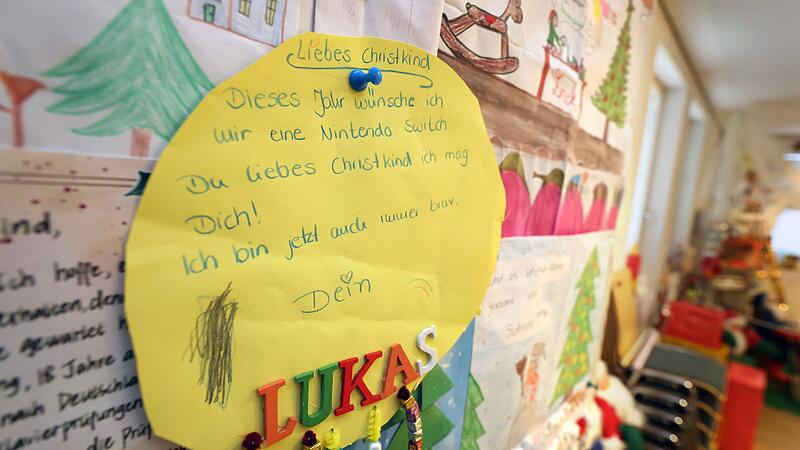 Liebes Christkind
Dieses Jahr wünsche ich
mir eine Nintendo Switch.
Du liebes Christkind ich mag
Dich!
Ich bin jetzt auch immer brav.
Dein
LUKAS
ind,
ich hoffe, e
gewartet h
18 Jahre a
nach Deutschla
lavierprüfungen
die Prüf